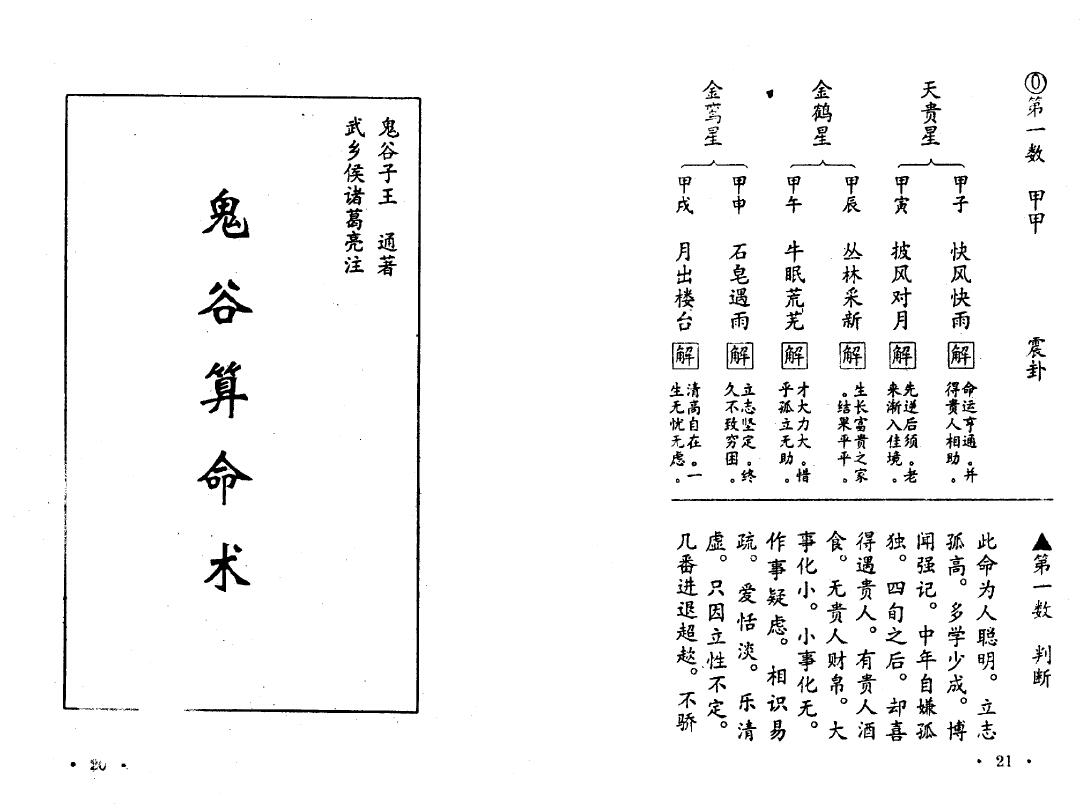 鬼谷子王 通著
武乡侯诸葛亮注
鬼谷算命术
· 20 ·
⓪第一数 甲甲 震卦
天贵星
甲子 快风快雨 解 命运亨通。并得贵人相助。
甲寅 披风对月 解 先逆后须。老来渐入佳境。
金鹤星
甲辰 丛林采新 解 生长富贵之家。结果平平。
甲午 牛眠荒芜 解 才大力大。惜乎孤立无助。
金鸾星
甲申 石皂遇雨 解 立志坚定。终久不致穷困。
甲戌 月出楼台 解 清高自在。一生无忧无虑。
▲第一数 判断
此命为人聪明。立志
孤高。多学少成。博
闻强记。中年自嫌孤
独。四旬之后。却喜
得遇贵人。有贵人酒
食。无贵人财帛。大
事化小。小事化无。
作事疑虑。相识易
疏。爱恬淡。乐清
虚。只因立性不定。
几番进退趑趄。不骄
· 21 ·